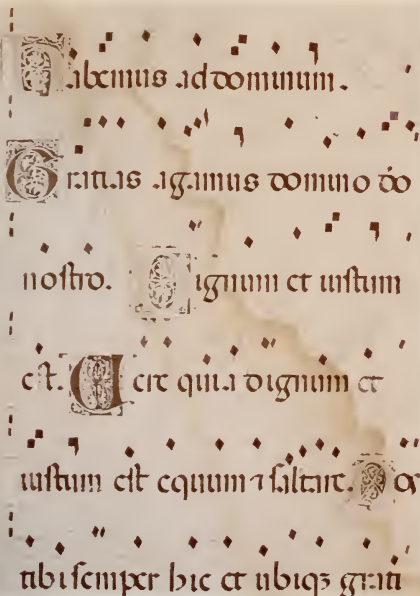 Habemus ad dominum.
Gratias agamus domino do
nostro. Dignum et iustum
est. Uere quia dignum et
iustum est equum ⁊ salutare. Nos
tibi semper hic et ubiqꝫ grati